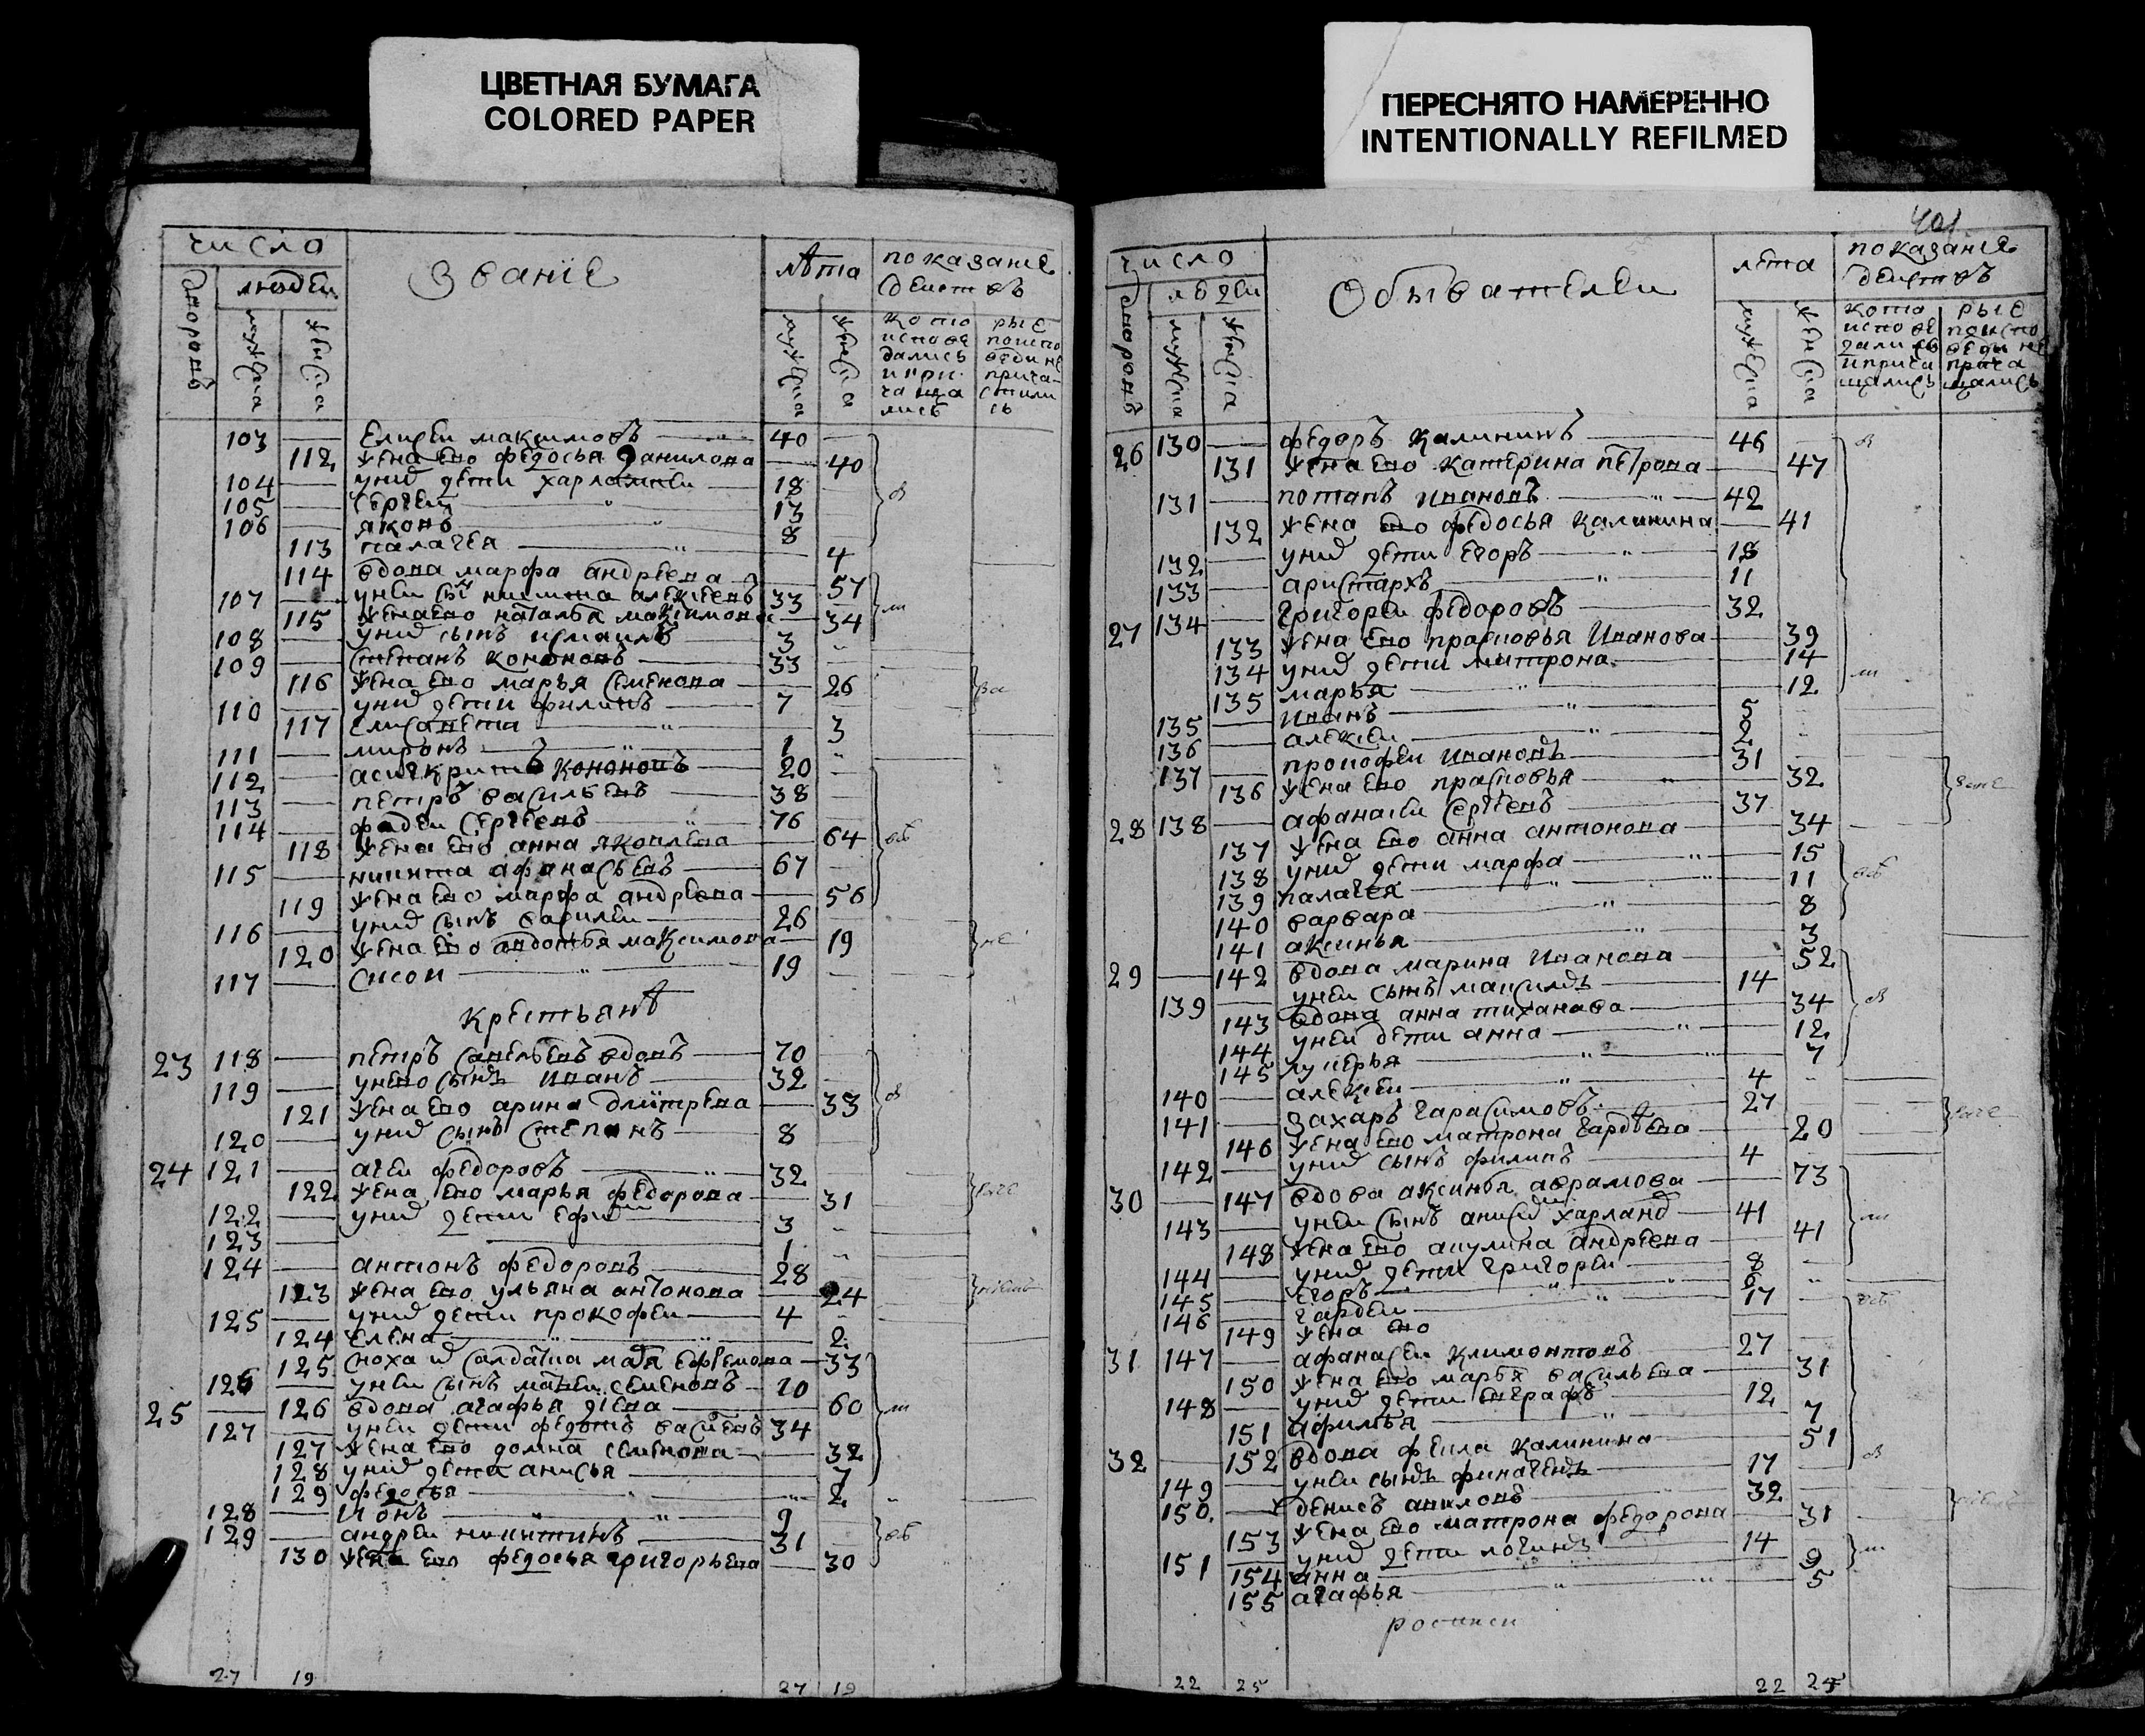 ЦВЕТНАЯ БУМАГА
COLORED PAPER
ПЕРЕСНЯТО НАМЕРЕННО
INTENTIONALLY REFILMED
число
Звание
лѣта
показание
действъ
людеи
дворовъ
мужеска
женска
мужеска
женска
кото рые
испове поиспо
дались веди не
и при прича
чаща стили
лись сь
103 Елисеи максимовъ 40
112 жена ево федосья данилова 40
104 у них дети харлампеи 18
105 сергеи 13
106 яковъ 8
113 палагея 4
114 вдова марфа андреева 57
107 у неи сынъ никита алексеевъ 33
115 жена ево наталья максимова 34
108 у них сынъ исмаилъ 3
109 степанъ кононовъ 33
116 жена ево марья семенова 26
110 у них дети филипъ 7
117 елисавета 3
111 миронъ 1
112 асигкритъ кононовъ 20
113 петръ васильевъ 38
114 фадеи сергеевъ 76
118 жена ево анна яковлева 64
115 никита афанасьевъ 67
119 жена ево марфа андреева 56
116 у них сынъ василеи 26
120 жена ево авдотья максимова 19
117 сисои 19
крестьянѣ
23 118 петръ савельевъ вдовъ 70
119 у нево сынъ иванъ 32
121 жена ево арина дмитрева 33
120 у них сынъ степанъ 8
24 121 агеи федоровъ 32
122 жена ево марья федорова 31
122 у них дети ефим 3
123 1
124 антонъ федоровъ 28
123 жена ево ульяна антонова 24
125 у них дети прокофеи 4
124 елена 2
125 сноха их салдатка марья ефремова 33
126 у неи сынъ матвеи семеновъ 10
25 126 вдова агафья 60
127 у неи дети федотъ васильевъ 34
127 жена ево домна семенова 32
128 у них дети анисья 7
129 федосья 2
128 ионъ 9
129 андреи никитинъ 31
130 жена ево федосья григорьева 30
27 19 27 19
401
число
Обыватели
лѣта
показание
действъ
людеи
дворовъ
мужеска
женска
мужеска
женска
кото рые
испове поиспо
дались веди не
и прича прича
щались щались
26 130 федоръ калининъ 46
131 жена ево катерина петрова 47
131 потапъ ивановъ 42
132 жена ево федосья калинина 41
132 у них дети егоръ 18
133 аристархъ 11
27 134 григореи федоровъ 32
133 жена ево прасковья иванова 39
134 у них дети митрона 14
135 марья 12
135 иванъ 5
136 алексеи 2
137 прокофеи ивановъ 31
136 жена ево прасковья 32
28 138 афанасеи сергеевъ 37
137 жена ево анна антонова 34
138 у них дети марфа 15
139 палагея 11
140 варвара 8
141 аксинья 3
29 142 вдова марина иванова 52
139 у неи сынъ максимъ 14
143 вдова анна тиханава 34
144 у неи дети анна 12
145 лукерья 7
140 алексеи 4
141 захаръ гарасимовъ 27
146 жена ево матрона гардѣева 20
142 у них сынъ филипъ 4
30 147 вдова аксинья аврамова 73
143 у неи сынъ анисим харлам 41
148 жена ево акулина андреева 41
144 у них дети григореи 8
145 егоръ 6
146 гардеи 17
149 жена ево
31 147 афанасеи климонтовъ 27
150 жена ево марья васильева 31
148 у них дети евграфъ 12
151 афимья 7
32 152 вдова фекла калинина 51
149 у неи сынъ финагенъ 17
150 денисъ вавиловъ 32
153 жена ево матрона федорова 31
151 у них дети логинъ 14
154 анна 9
155 агафья 5
росписи
22 25 22 25